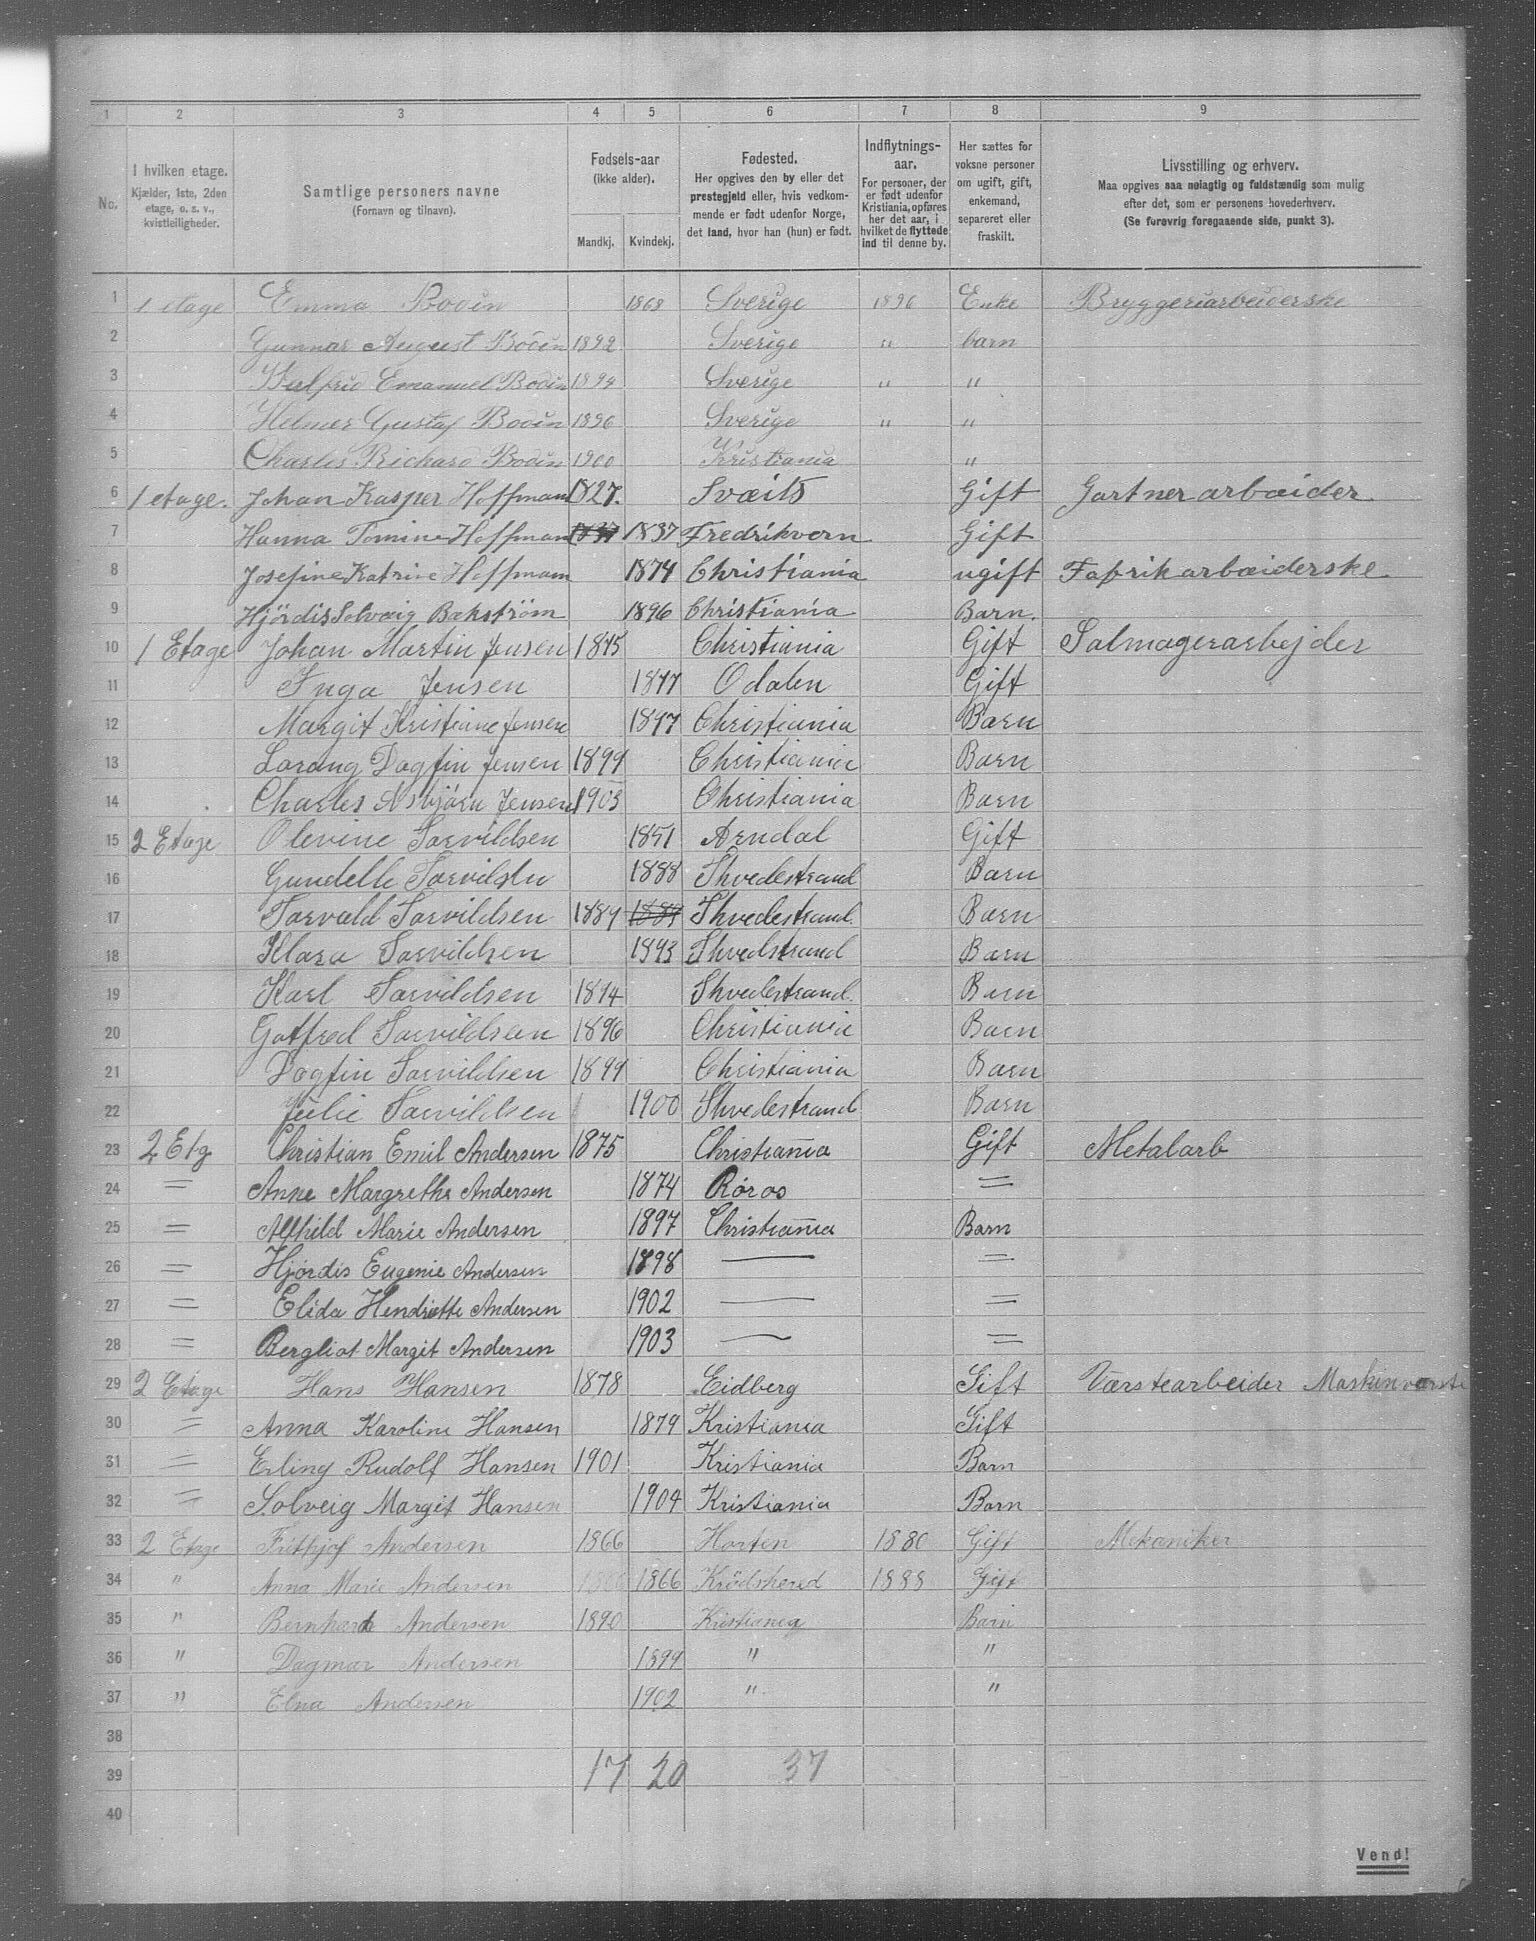 1 2 3 4 5 6 7 8 9
No.
I hvilken etage.
Kjælder, 1ste, 2den
etage, o. s. v.,
kvistleiligheder.
Samtlige personers navne
(Fornavn og tilnavn).
Fødsels-aar
(ikke alder).
Mandkj. Kvindekj.
Fødested.
Her opgives den by eller det
prestegjeld eller, hvis vedkom-
mende er født udenfor Norge,
det land, hvor han (hun) er født.
Indflytnings-
aar.
For personer, der
er født udenfor
Kristiania, opføres
her det aar, i
hvilket de flyttede
ind til denne by.
Her sættes for
voksne personer
om ugift, gift,
enkemand,
separeret eller
fraskilt.
Livsstilling og erhverv.
Maa opgives saa nøiagtig og fuldstændig som mulig
efter det, som er personens hovederhverv.
(Se forøvrig foregaaende side, punkt 3).
1 1 etage Emma Bodin 1868 Sverige 1896 Enke Bryggeriarbeiderske
2 Gunnar August Bodin 1892 Sverige " barn
3 Emanuel Bodin 1894 Sverige " "
4 Helmer Gustaf Bodin 1896 Sverige " "
5 Charles Richard Bodin 1900 Kristiania "
6 1 etage. Johan Kasper Hoffman 1827. Svæits Gift Gartner arbæider
7 Hanna Tomine Hoffman 1837 1837 Fredrikvern Gift
8 Josefine Katrine Hoffmam 1874 Christiania ugift Fabrik arbæiderske
9 Hjördis Solvæig Bakström 1896 Christiania Barn.
10 1 Etage Johan Martin Jensen 1875 Christiania Gift Salmagerarbejder
11 Inga Jensen 1877 Odalen Gift
12 Margit Kristiane Jensen 1897 Christiania Barn
13 Lorang Dagfin Jensen 1899 Christiania Barn
14 Charles Asbjørn Jensen 1903 Christiania Barn
15 2 Etage Olevine Sorvildsen 1851 Arndal Gift
16 Gundelle Sorvildsen 1888 Thvedestrand Barn
17 Torvald Sorvildsen 1889 1889 Thvedestrand. Barn
18 Klara Sorvildsen 1893 Thvedstrand Barn
19 Karl Sorvildsen 1894 Thvedestrand. Barn
20 Gotfred Sorvildsen 1896 Christiania Barn
21 Dagfin Sorvildsen 1899 Christiania Barn
22 Julie Sorvildsen 1900 Thvedestrand Barn
23 2 Etg Christian Emil Andersen 1875 Christiania Gift Metalarb
24 = Anne Margrethe Andersen 1874 Røros =
25 = Alfhild Marie Andersen 1897 Christiania Barn
26 = Hjørdis Eugenie Andersen 1898 — =
27 = Elida Henriette Andersen 1902 — =
28 = Bergliot Margit Andersen 1903 — =
29 2 Etage Hans Hansen 1878 Eidberg Gift Værstearbeider
30 = Anna Karoline Hansen 1879 Kristiania Gift
31 = Erling Rudolf Hansen 1901 Kristiania Barn
32 = Solveig Margit Hansen 1904 Kristiania Barn
33 2 Etage Frithjof Andersen 1866 Horten 1880 Gift Mekaniker
34 " Anna Marie Andersen 1866 1866 Krödshered 1888 Gift
35 " Bernhard Andersen 1890 Kristiania Barn
36 " Dagmar Andersen 1899 " "
37 " Elna Andersen 1902 " "
38
39 17 20 37
40
Vend!